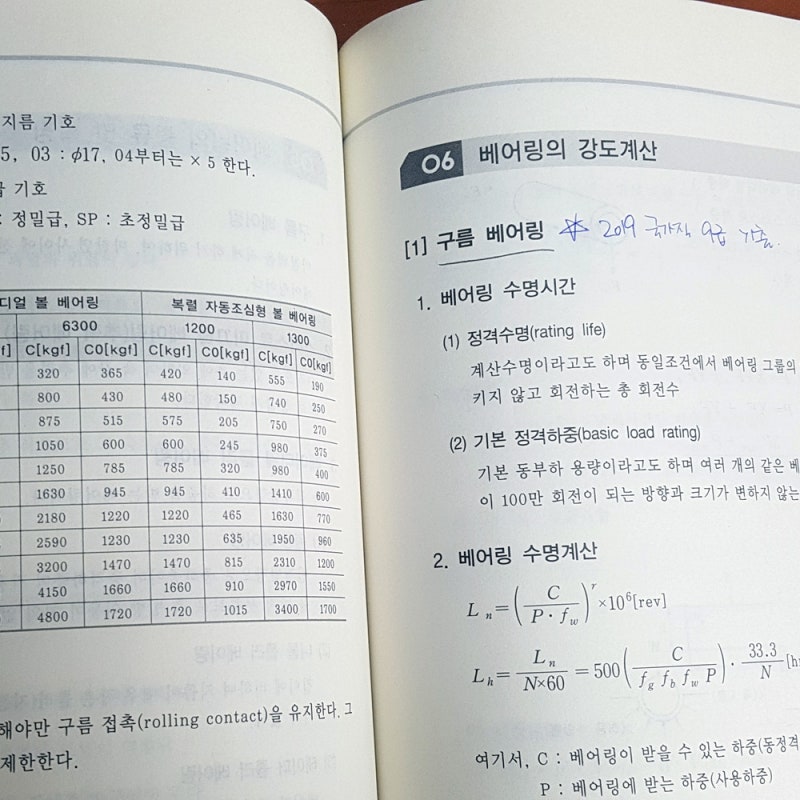 지름 기호
5, 03 : ϕ17, 04부터는 × 5 한다.
급 기호
: 정밀급, SP : 초정밀급
디얼 볼 베어링 복렬 자동조심형 볼 베어링
6300 1200 1300
f] C[kgf] C0[kgf] C[kgf] C0[kgf] C[kgf] C0[kgf]
320 365 420 140 555 190
800 430 480 150 740 250
875 515 575 205 750 270
1050 600 600 245 980 375
1250 785 785 320 980 400
1630 945 945 410 1410 600
2180 1220 1220 465 1630 770
2590 1230 1230 635 1950 960
3200 1470 1470 815 2310 1200
4150 1660 1660 910 2970 1550
4800 1720 1720 1015 3400 1700
해야만 구름 접촉(rolling contact)을 유지한다. 그
제한한다.
06 베어링의 강도계산
[1] 구름 베어링 2019 국가직 9급 기출.
1. 베어링 수명시간
(1) 정격수명(rating life)
계산수명이라고도 하며 동일조건에서 베어링 그룹의
키지 않고 회전하는 총 회전수
(2) 기본 정격하중(basic load rating)
기본 동부하 용량이라고도 하며 여러 개의 같은 베
이 100만 회전이 되는 방향과 크기가 변하지 않는
2. 베어링 수명계산
L n = ( C / P · f w ) r ×10⁶[rev]
L h = L n / N×60 = 500 ( C / f g f b f w P ) · 33.3 / N [h
여기서, C : 베어링이 받을 수 있는 하중(동정격
P : 베어링에 받는 하중(사용하중)